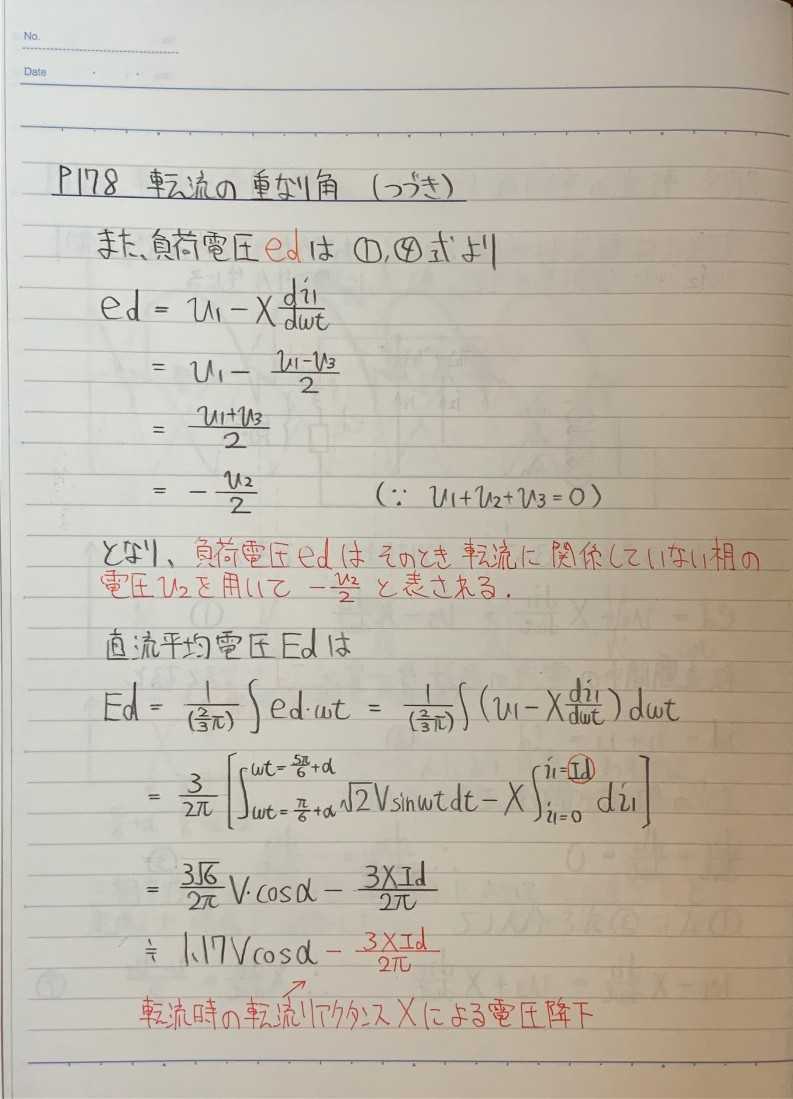 No.
Date
P178 転流の重なり角 (つづき)
また、負荷電圧 ed は ①,④式より
ed = v1 − X di1/dωt
= v1 − (v1−v3)/2
= (v1+v3)/2
= − v2/2 (∵ v1+v2+v3=0)
となり、負荷電圧edはそのとき転流に関係していない相の
電圧v2を用いて −v2/2 と表される.
直流平均電圧Edは
Ed = 1/(2/3π) ∫ed・ωt = 1/(2/3π) ∫(v1 − X di1/dωt) dωt
= 3/2π [∫_{ωt=π/6+α}^{ωt=5π/6+α} √2Vsinωtdt − X∫_{i1=0}^{i1=Id} di1]
= 3√6/2π V・cosα − 3XId/2π
≒ 1.17Vcosα − 3XId/2π
転流時の転流リアクタンスXによる電圧降下